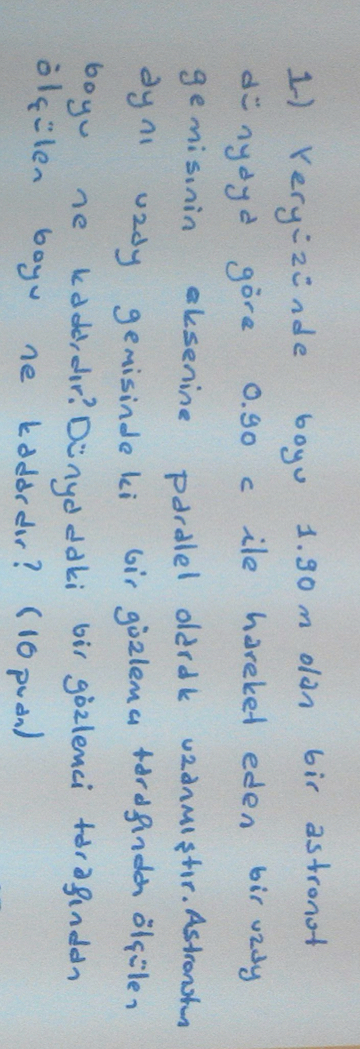 1-) Yeryüzünde boyu 1.90 m olan bir astronot
dünyaya göre 0.90 c ile hareket eden bir uzay
gemisinin eksenine paralel olarak uzanmıştır. Astronotun
aynı uzay gemisindeki bir gözlemci tarafından ölçülen
boyu ne kadardır? Dünyadaki bir gözlemci tarafından
ölçülen boyu ne kadardır? (10 puan)